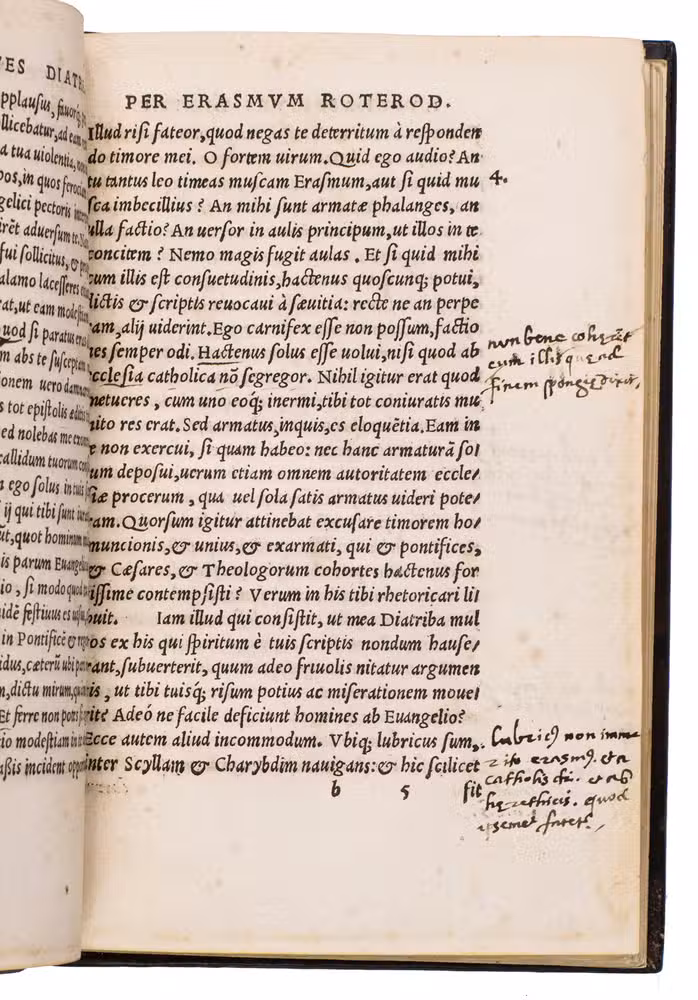 TES DIATR
pplausus, fauorq;
llicebatur, ad eam
a tua uiolentia,
os, in quos feroci
gelici pectoris
rēt aduersum te.
fui sollicitus, &
alamo lacesseres
rat, ut eam modesti
uod si paratus
m abs te suscep
onem uero damn
s tot epistolis
ed nolebas me
callidum tuorum
n ego solus in tuis
ij qui tibi sunt
ūt, quot hominum
is parum Euangeli
io, si modo quod
idē festiuus es
in Pontificē &
idus, cæterū ubi
n, dictu mirum,
Et ferre non
io modestiam in
aßis incident
PER ERASMVM ROTEROD.
Illud risi fateor, quod negas te deterritum à responden
do timore mei. O fortem uirum. Quid ego audio? An
tu tantus leo timeas muscam Erasmum, aut si quid mu 4.
sca imbecillius? An mihi sunt armatæ phalanges, an
ulla factio? An uersor in aulis principum, ut illos in te
concitem? Nemo magis fugit aulas. Et si quid mihi
cum illis est consuetudinis, hactenus quoscunq; potui,
dictis & scriptis reuocaui à sæuitia: recte ne an perpe
ram, alij uiderint. Ego carnifex esse non possum, factio
nes semper odi. Hactenus solus esse uolui, nisi quod ab
ecclesia catholica nō segregor. Nihil igitur erat quod
metueres, cum uno eoq; inermi, tibi tot coniuratis mu
nito res erat. Sed armatus, inquis, es eloquētia. Eam in
te non exercui, si quam habeo: nec hanc armaturā sol
um deposui, uerum etiam omnem autoritatem eccle/
siæ procerum, qua uel sola satis armatus uideri pote/
ram. Quorsum igitur attinebat excusare timorem ho/
muncionis, & unius, & exarmati, qui & pontifices,
& Cæsares, & Theologorum cohortes hactenus for
tissime contempsisti? Verum in his tibi rhetoricari li/
buit. Iam illud qui consistit, ut mea Diatriba mul
tos ex his qui spiritum è tuis scriptis nondum hause/
rant, subuerterit, quum adeo friuolis nitatur argumen
tis, ut tibi tuisq; risum potius ac miserationem moue/
rit? Adeó ne facile deficiunt homines ab Euangelio?
Ecce autem aliud incommodum. Vbiq; lubricus sum,
inter Scyllam & Charybdim nauigans: & hic scilicet
b 5 sit
non bene coheret
cum illis quę ad
finem spongię dixit,
Lubricus non imme
rito erasmus. et a
catholicis dici. et ab
hęrethicis. quod